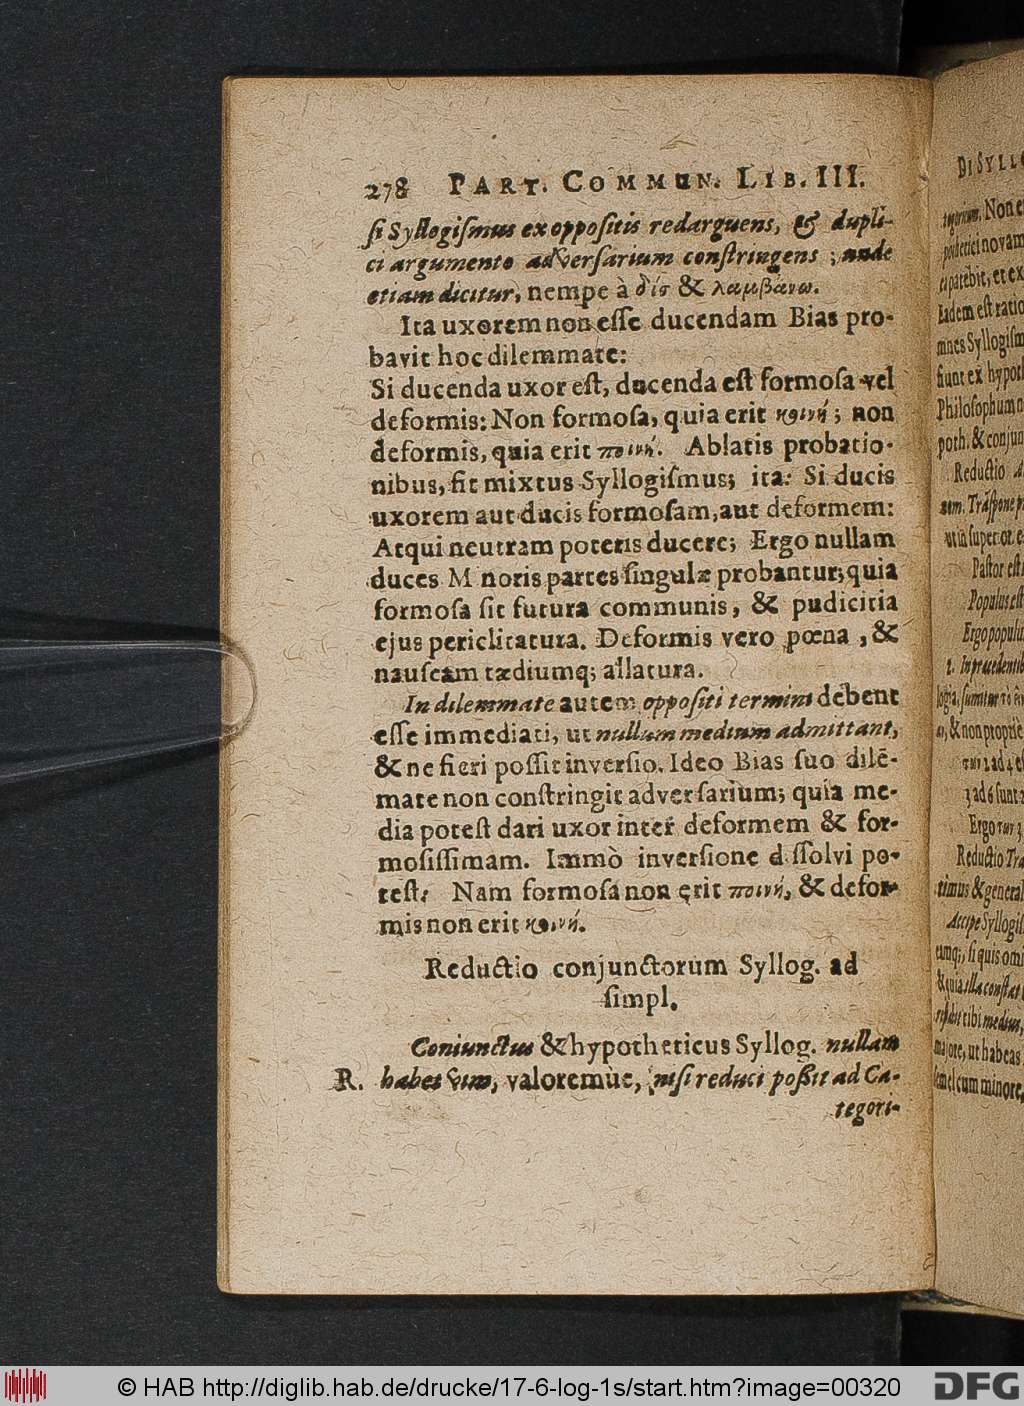 278 PART. COMMUN. LIB. III.
ſi Syllogiſmus ex oppoſitis redarguens, & dupli-
ci argumento adverſarium conſtringens; unde
etiam dicitur, nempe à δίς & λαμβάνω.
Ita uxorem non eſſe ducendam Bias pro-
bavit hoc dilemmate:
Si ducenda uxor eſt, ducenda eſt formoſa vel
deformis: Non formoſa, quia erit κοινή; non
deformis, quia erit ποινή. Ablatis probatio-
nibus, fit mixtus Syllogiſmus; ita: Si ducis
uxorem aut ducis formoſam, aut deformem:
Atqui neutram poteris ducere; Ergo nullam
duces M noris partes ſingulæ probantur; quia
formoſa ſit futura communis, & pudicitia
ejus periclitatura. Deformis vero pœna, &
nauſeam tædiumq; allatura.
In dilemmate autem oppoſiti termini debent
eſſe immediati, ut nullum medium admittant,
& ne fieri poſſit inverſio. Ideo Bias ſuo dilē-
mate non conſtringit adverſarium; quia me-
dia poteſt dari uxor inter deformem & for-
moſiſſimam. Immò inverſione d ſſolvi po-
teſt: Nam formoſa non erit ποινή, & defor-
mis non erit κοινή.
Reductio conjunctorum Syllog. ad
ſimpl.
Coniunctus & hypotheticus Syllog. nullam
R. habet vim, valoremùe, niſi reduci poßit ad Ca-
tegori-
DI SYLLO
tegorium. Non e
pothetici novam
ei patebit, et ex
Eadem eſt ratio
mnes Syllogiſm
fiunt ex hypoth
Philoſophum n
poth. & conjun
Reductio
Paſtor eſt
Populus eſt
Ergo populu
& non propriè
3 ad 6 ſunt
Ergo
Reductio Tra
timus & general
Accipe Syllogiſ
eumq;, ſi quis omi
& quia illa conſtat
tibi medius,
majore, ut habeas
ſemel cum minore,
© HAB http://diglib.hab.de/drucke/17-6-log-1s/start.htm?image=00320
DFG